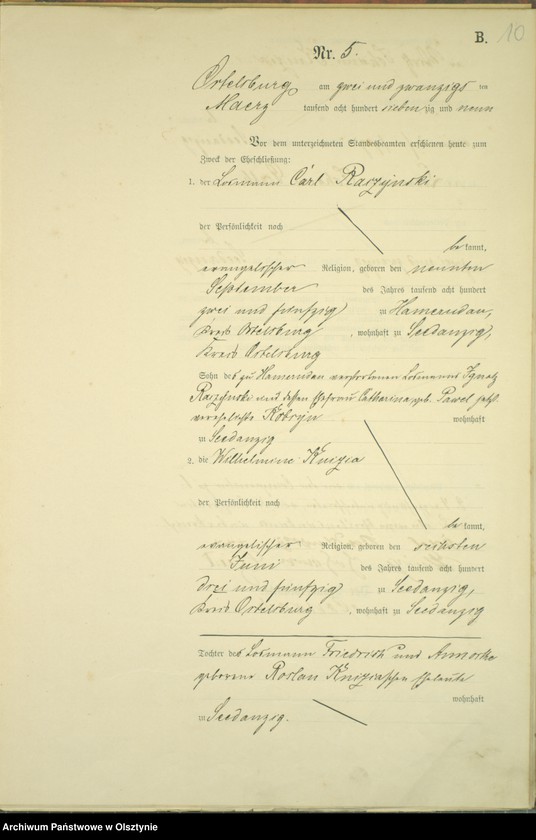 B. 10
Nr. 5.
Ortelsburg am zwei und zwanzigs ten
Maerz tausend acht hundert siebenzig und neun
Vor dem unterzeichneten Standesbeamten erschienen heute zum
Zweck der Eheschließung:
1. der Losmann Carl Raczynski
der Persönlichkeit nach
bekannt,
evangelischer Religion, geboren den neunten
September des Jahres tausend acht hundert
zwei und fünfzig zu Hamerudau,
Kreis Ortelsburg, wohnhaft zu Seedanzig,
Kreis Ortelsburg
Sohn des zu Hamerudau verstorbenen Losmanns Ignatz
Raczynski und dessen Ehefrau Catharina geb. Pawel jetzt
verehelichte Kobryn wohnhaft
zu Seedanzig
2. die Wilhelmine Knizia
der Persönlichkeit nach
bekannt,
evangelischer Religion, geboren den sechsten
Juni des Jahres tausend acht hundert
drei und fünfzig zu Seedanzig,
Kreis Ortelsburg, wohnhaft zu Seedanzig
Tochter des Losmann Friedrich und
geborene Roslan Kniziaschen Eheleute
wohnhaft
zu Seedanzig.
Archiwum Państwowe w Olsztynie